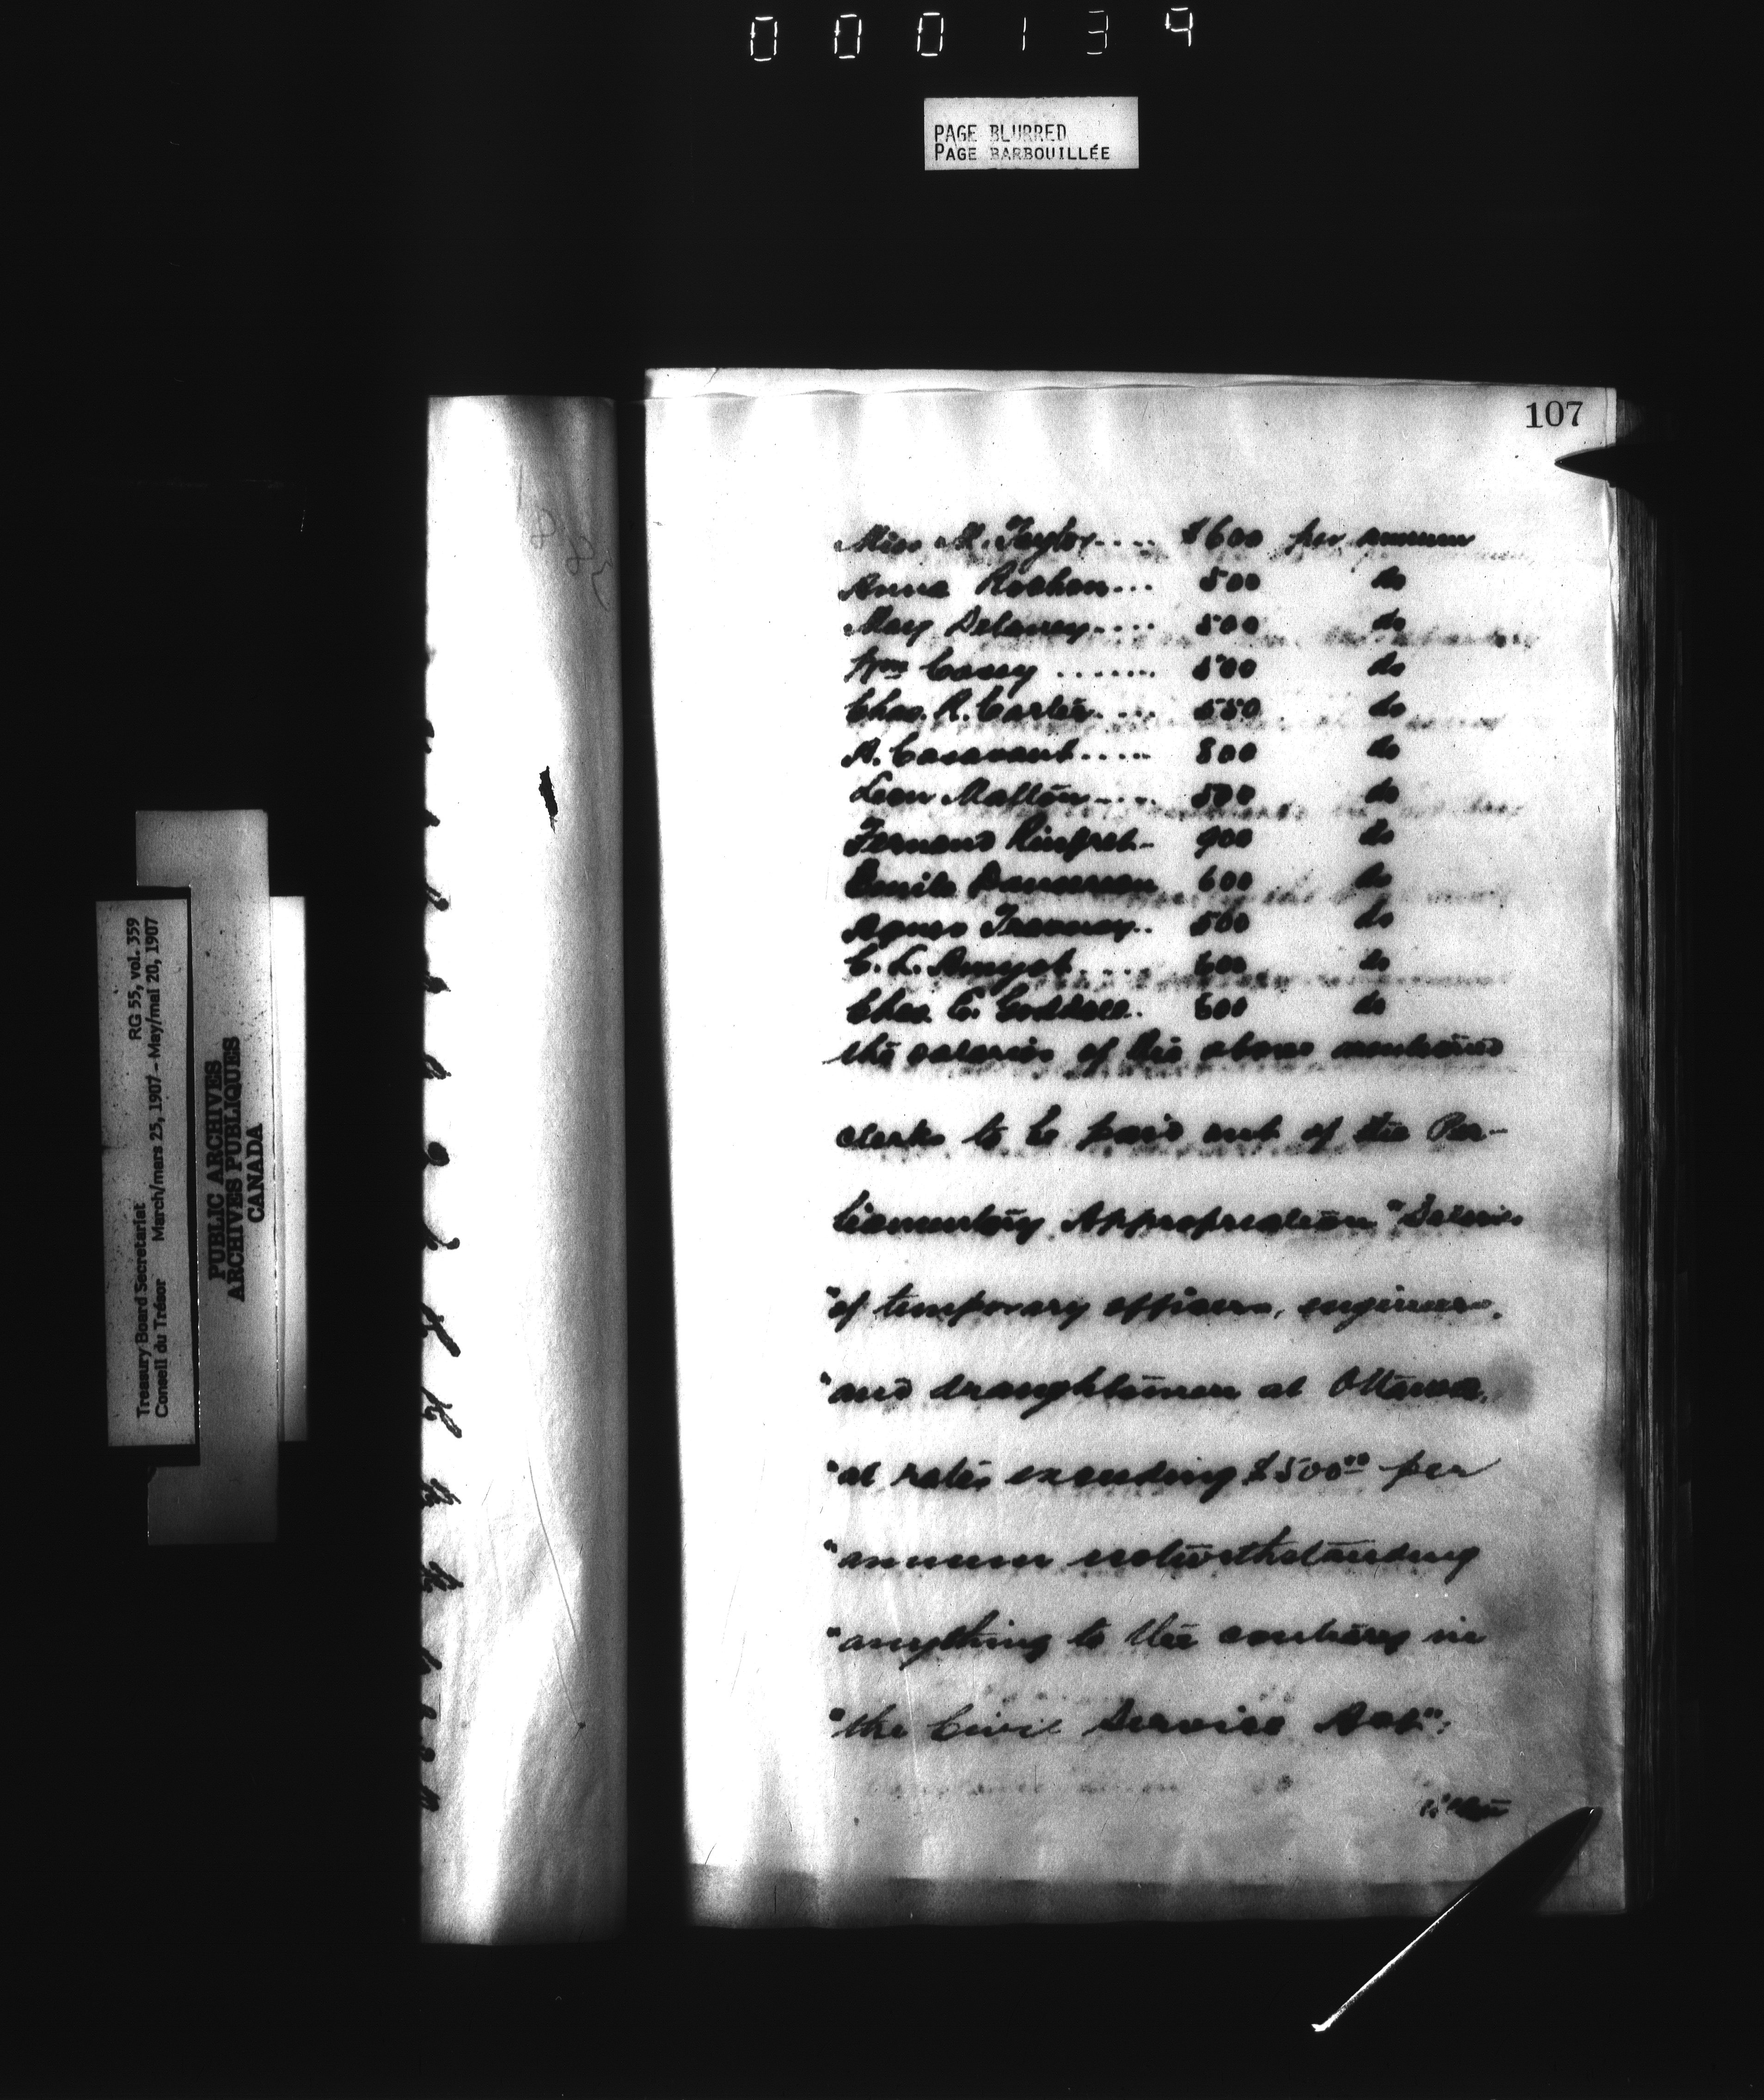 000139
PAGE BLURRED
PAGE BARBOUILLÉE
107
Miss M. Taylor.... $600 per annum
Anna Rochon... 500 do
Mary Delaney.... 500 do
Wm Casey ....... 500 do
Chas. R. Carter.... 550 do
A. Casavant..... 800 do
Leon 500 do
Fernand Rinfret.. 900 do
Emile 600 do
Agnes 500 do
C. L. Amyot.... 600 do
Chas. E. 600 do
the salaries of the above mentioned
clerks to be paid out of the Par-
liamentary Appropriation "Salaries
"of temporary officers, engineers,
"and draughtsmen at Ottawa,
"at rates exceeding $500.00 per
"annum notwithstanding
"anything to the contrary in
"the Civil Service Act";
Treasury Board Secretariat RG 55, vol. 359
Conseil du Trésor March/mars 25, 1907 - May/mai 20, 1907
PUBLIC ARCHIVES
ARCHIVES PUBLIQUES
CANADA